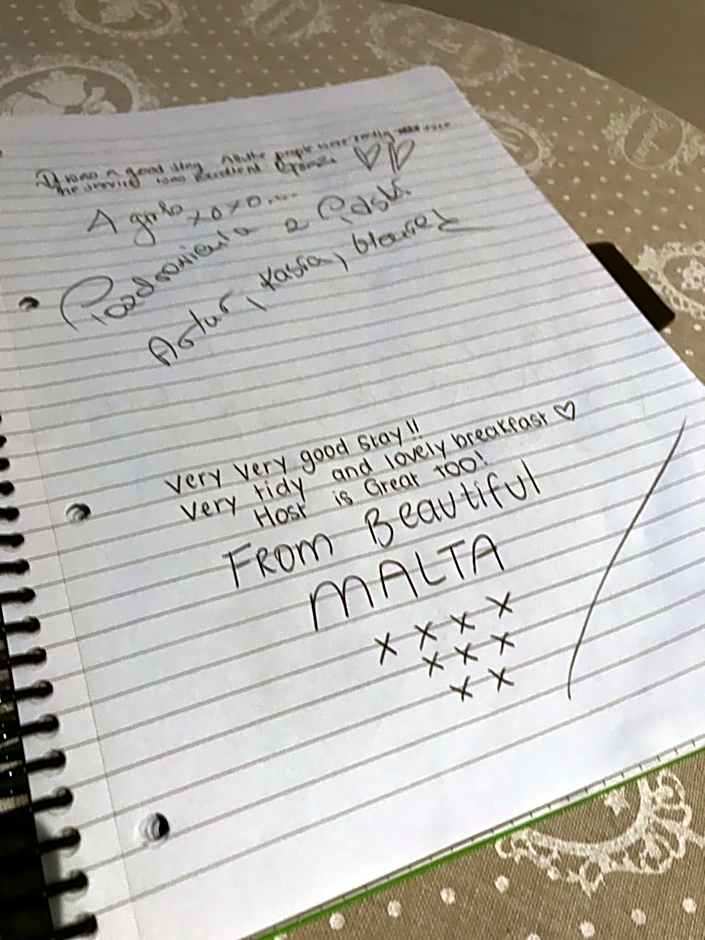 It was a good stay. All the people were really nice
the service was excellent
A girls xoxo...
Pozdrowienia z Polski
Artur, Kasia,
Very very good stay!!
Very tidy and lovely breakfast ♡
Host is Great too!
From Beautiful
MALTA
x x x x
x x x
x x